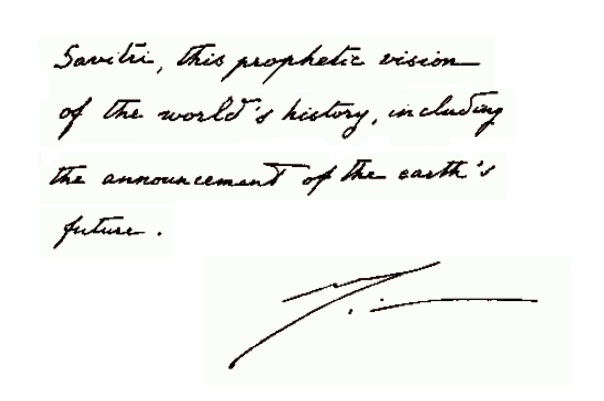 Savitri, this prophetic vision
of the world's history, including
the announcement of the earth's
future.